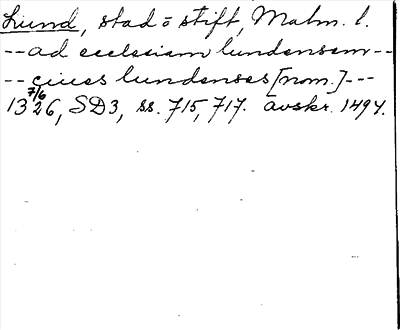 Lund, stad o stift, Malm. l.
-- ad ecclesiam lundensem --
-- ciues lundenses [nom.] ---
13 7/6 26, SD3, ss. 715, 717. avskr. 1494.